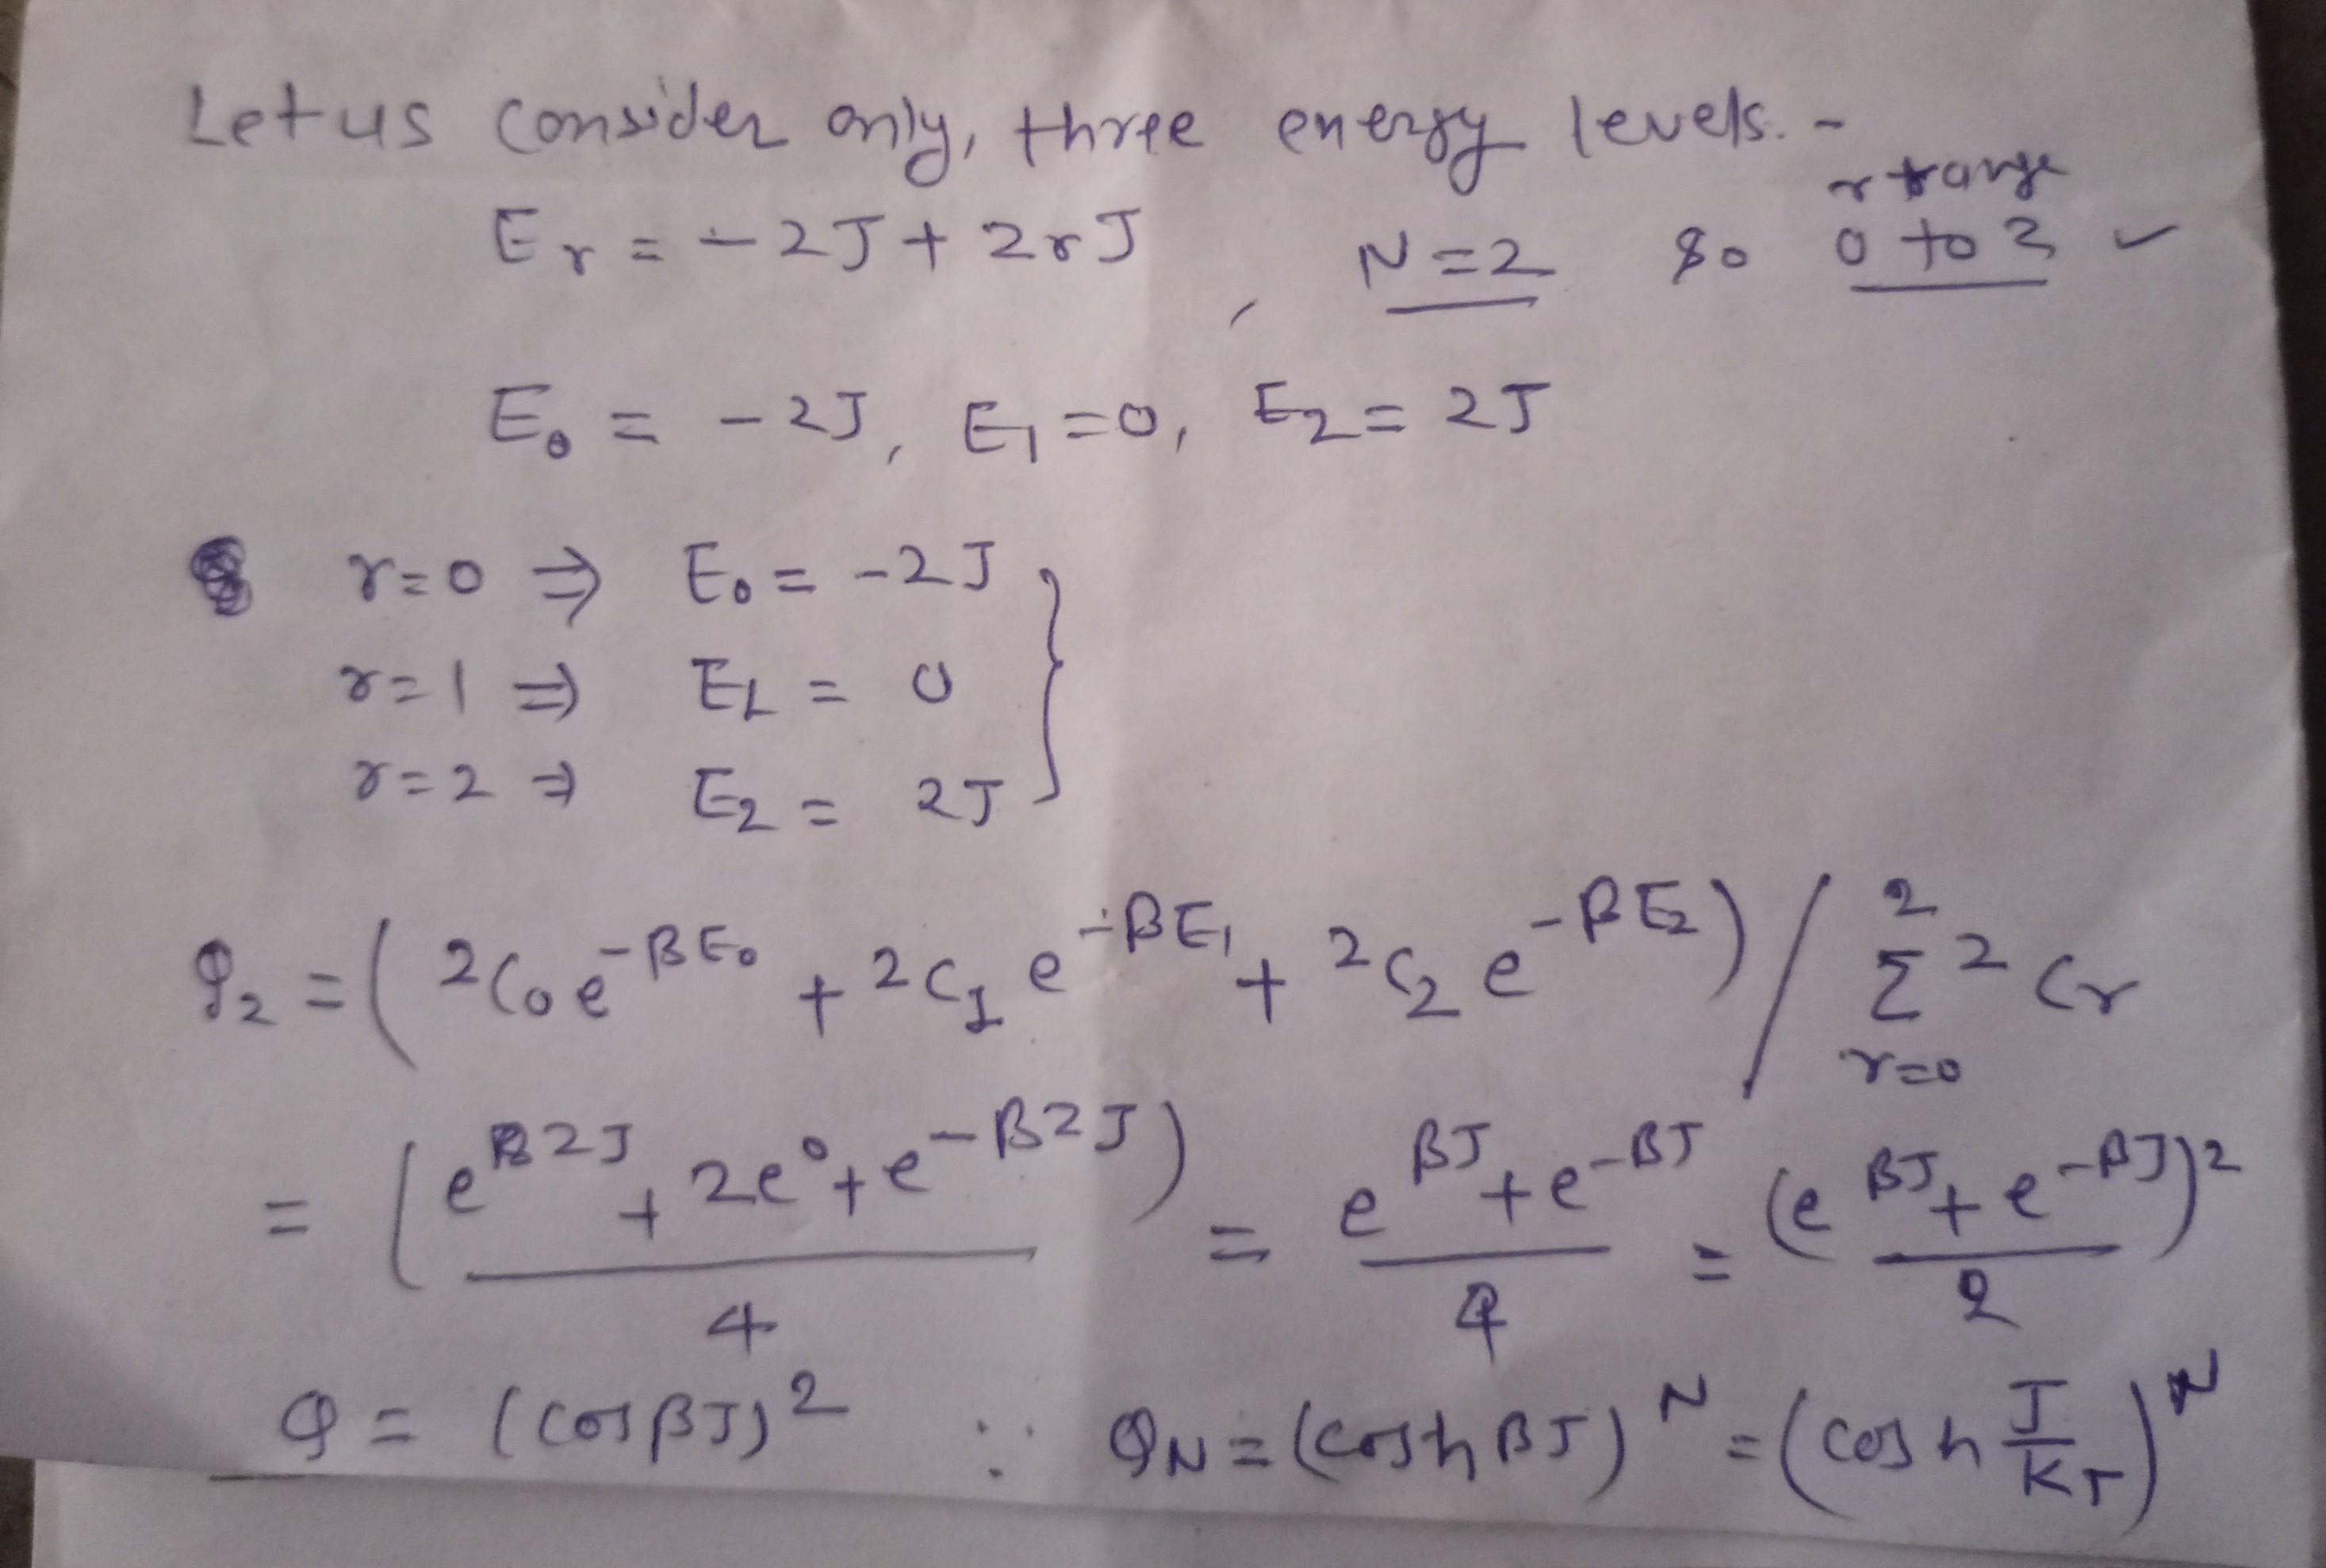 Let us consider only, three energy levels. -
r range
E_r = -2J + 2rJ , N=2 So 0 to 2 ✓
E_0 = -2J, E_1 = 0, E_2 = 2J
r=0 ⇒ E_0 = -2J
r=1 ⇒ E_1 = 0
r=2 ⇒ E_2 = 2J
Q_2 = ( 2C_0 e^{-βE_0} + 2C_1 e^{-βE_1} + 2C_2 e^{-βE_2} ) / Σ_{r=0}^{2} 2C_r
= ( e^{β2J} + 2e^0 + e^{-β2J} ) / 4 = e^{βJ} + e^{-βJ} / 4 = (e^{βJ} + e^{-βJ})^2 / 2
Q = (cosβJ)^2 ∴ Q_N = (coshβJ)^N = (cosh J/KT)^N